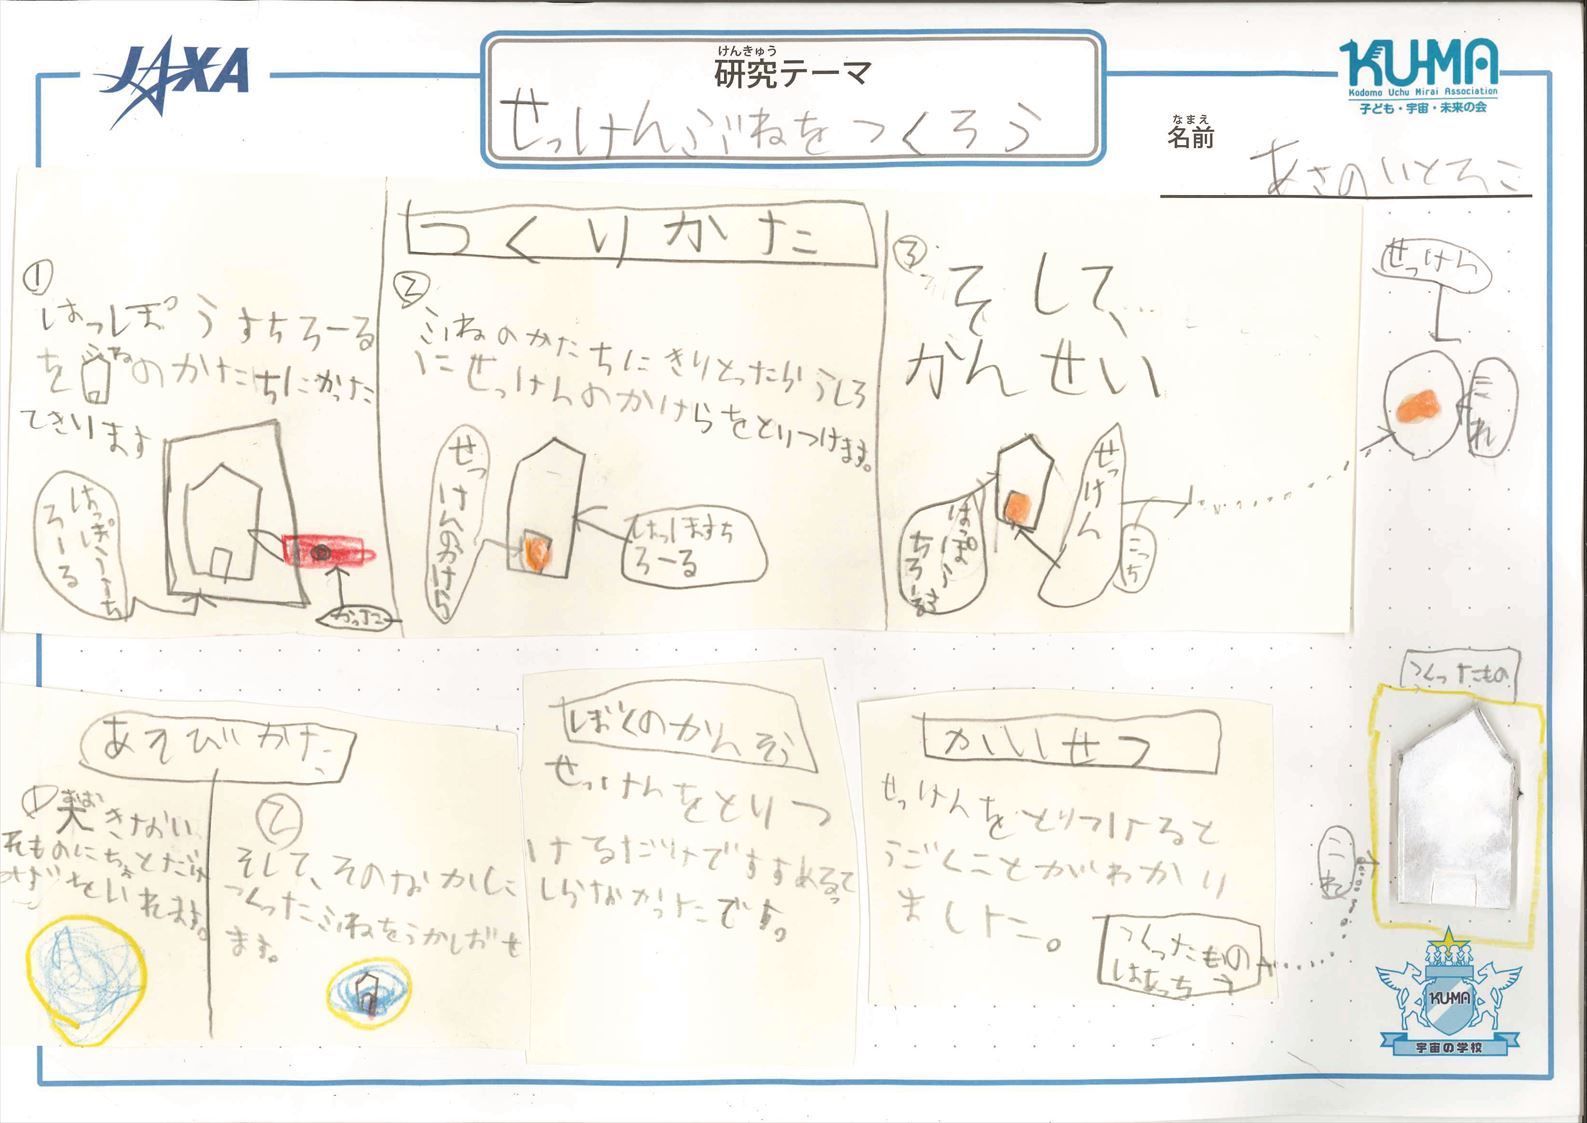 JAXA
けんきゅう
研究テーマ
せっけんぶねをつくろう
KU-MA
Kodomo Uchu Mirai Association
子ども・宇宙・未来の会
なまえ
名前
つくりかた
①
はっぽうすちろーる
を ふね のかたちにかった
てきります
はっぽうすち
ろーる
かったー
②
ふねのかたちにきりとったらうしろ
にせっけんのかけらをとりつけます。
せっけんのかけら
はっぽすち
ろーる
③
そして、
かんせい
はっぽう
ちろーる
せっけん
こっち
せっけん
これ
あそびかた
①
大きない
れものにちょとだけ
みずをいれます。
②
そして、そのなかに
つくったふねをうかしばせ
ます。
ぼくのかんそう
せっけんをとりつ
けるだけですすめるって
しらなかったです。
かいせつ
せっけんをとりつけると
うごくことがわかり
ました。
つくったもの
はあっち
つくったもの
これ
KU-MA
宇宙の学校